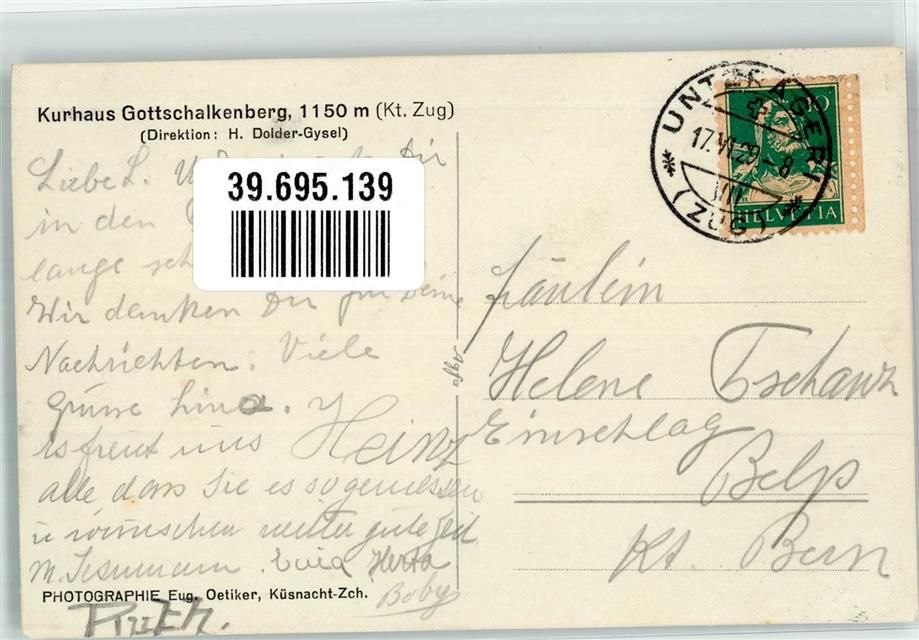 Kurhaus Gottschalkenberg, 1150 m (Kt. Zug)
(Direktion: H. Dolder-Gysel)
Liebe L. dir
39.695.139
in den
lange
Wir danken dir für deine
Nachrichten. Viele
Grüsse Lina.
Es freut uns Heinz
alle dass Sie es so geniessen
u wünschen weiter gute Zeit
M. Herta
Boby
PHOTOGRAPHIE Eug. Oetiker, Küsnacht-Zch.
Agfa
UNTERÄGERI
17.VI.29-8
VII
(ZUG)
10
HELVETIA
Fräulein
Helene Tschanz
Einschlag
Belp
Kt. Bern